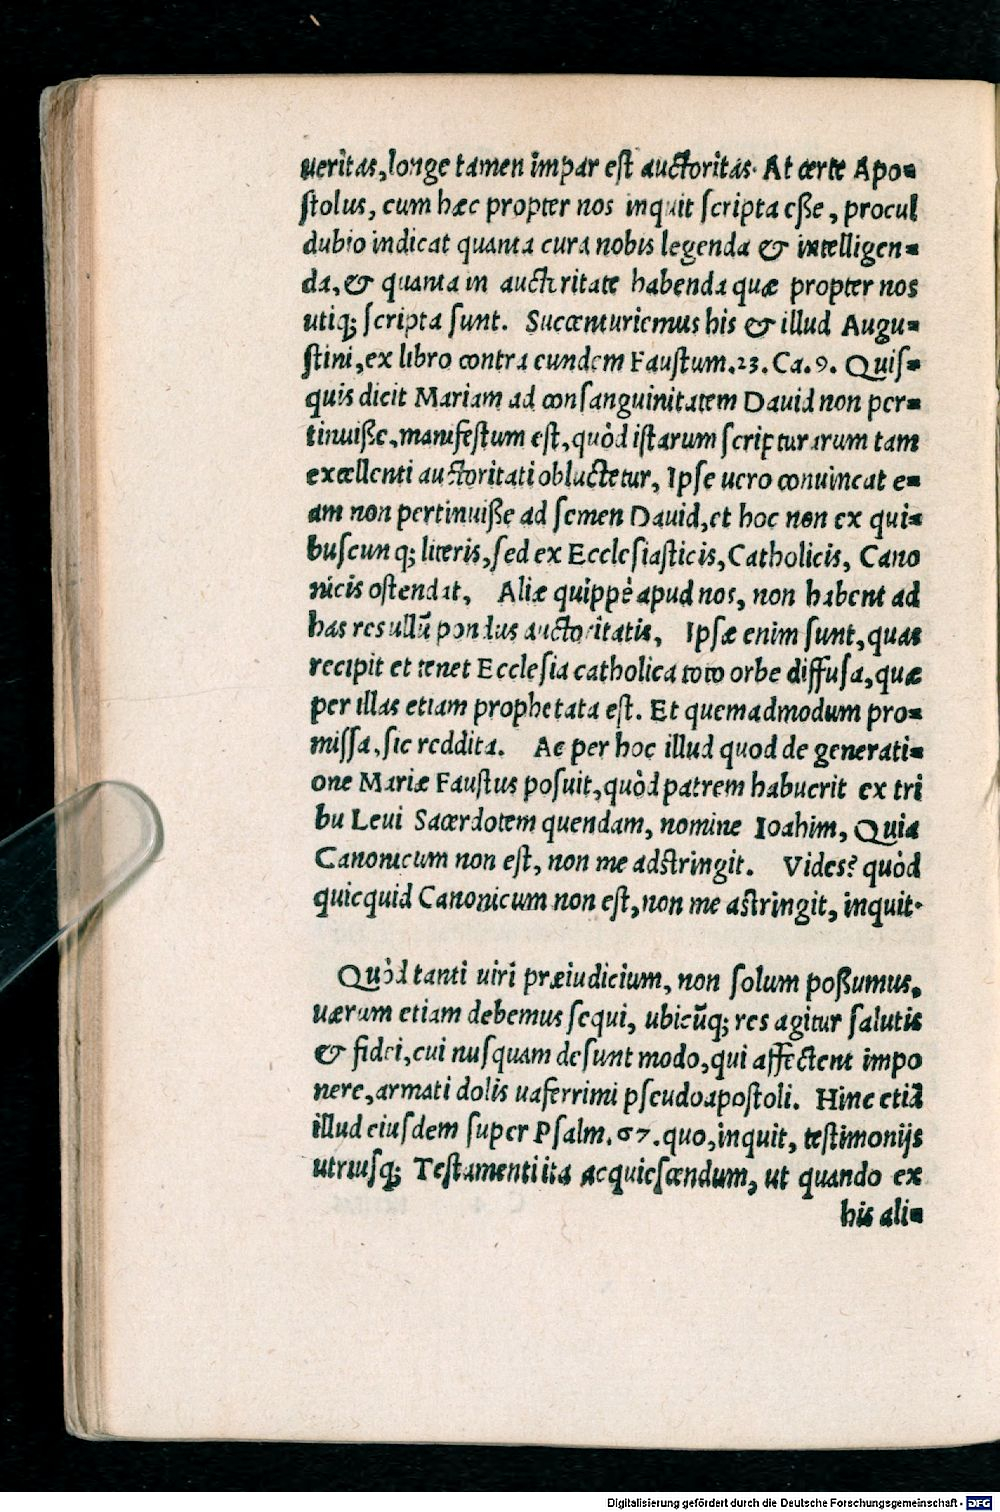 ueritas, longe tamen impar est auctoritas. At certe Apo-
stolus, cum hæc propter nos inquit scripta eße, procul
dubio indicat quanta cura nobis legenda & intelligen-
da, & quanta in auctoritate habenda quæ propter nos
utiq; scripta sunt. Succenturiemus his & illud Augu-
stini, ex libro contra eundem Faustum. 23. Ca. 9. Quis-
quis dicit Mariam ad consanguinitatem Dauid non per-
tinuiße, manifestum est, quòd istarum scripturarum tam
excellenti auctoritati obluctetur, Ipse uero conuincat e-
am non pertinuiße ad semen Dauid, et hoc non ex qui-
buscunq; literis, sed ex Ecclesiasticis, Catholicis, Cano
nicis ostendat, Aliæ quippè apud nos, non habent ad
has res ullũ pondus auctoritatis, Ipsæ enim sunt, quas
recipit et tenet Ecclesia catholica toto orbe diffusa, quæ
per illas etiam prophetata est. Et quemadmodum pro-
missa, sic reddita. Ac per hoc illud quod de generati-
one Mariæ Faustus posuit, quòd patrem habuerit ex tri
bu Leui Sacerdotem quendam, nomine Ioahim, Quia
Canonicum non est, non me adstringit. Vides? quòd
quicquid Canonicum non est, non me astringit, inquit.
Quòd tanti uiri præiudicium, non solum poßumus,
uærum etiam debemus sequi, ubicũq; res agitur salutis
& fidei, cui nusquam desunt modo, qui affectent impo
nere, armati dolis uaferrimi pseudoapostoli. Hinc etiã
illud eiusdem super Psalm. 67. quo, inquit, testimonijs
utriusq; Testamenti ita acquiescendum, ut quando ex
his ali-
Digitalisierung gefördert durch die Deutsche Forschungsgemeinschaft - DFG